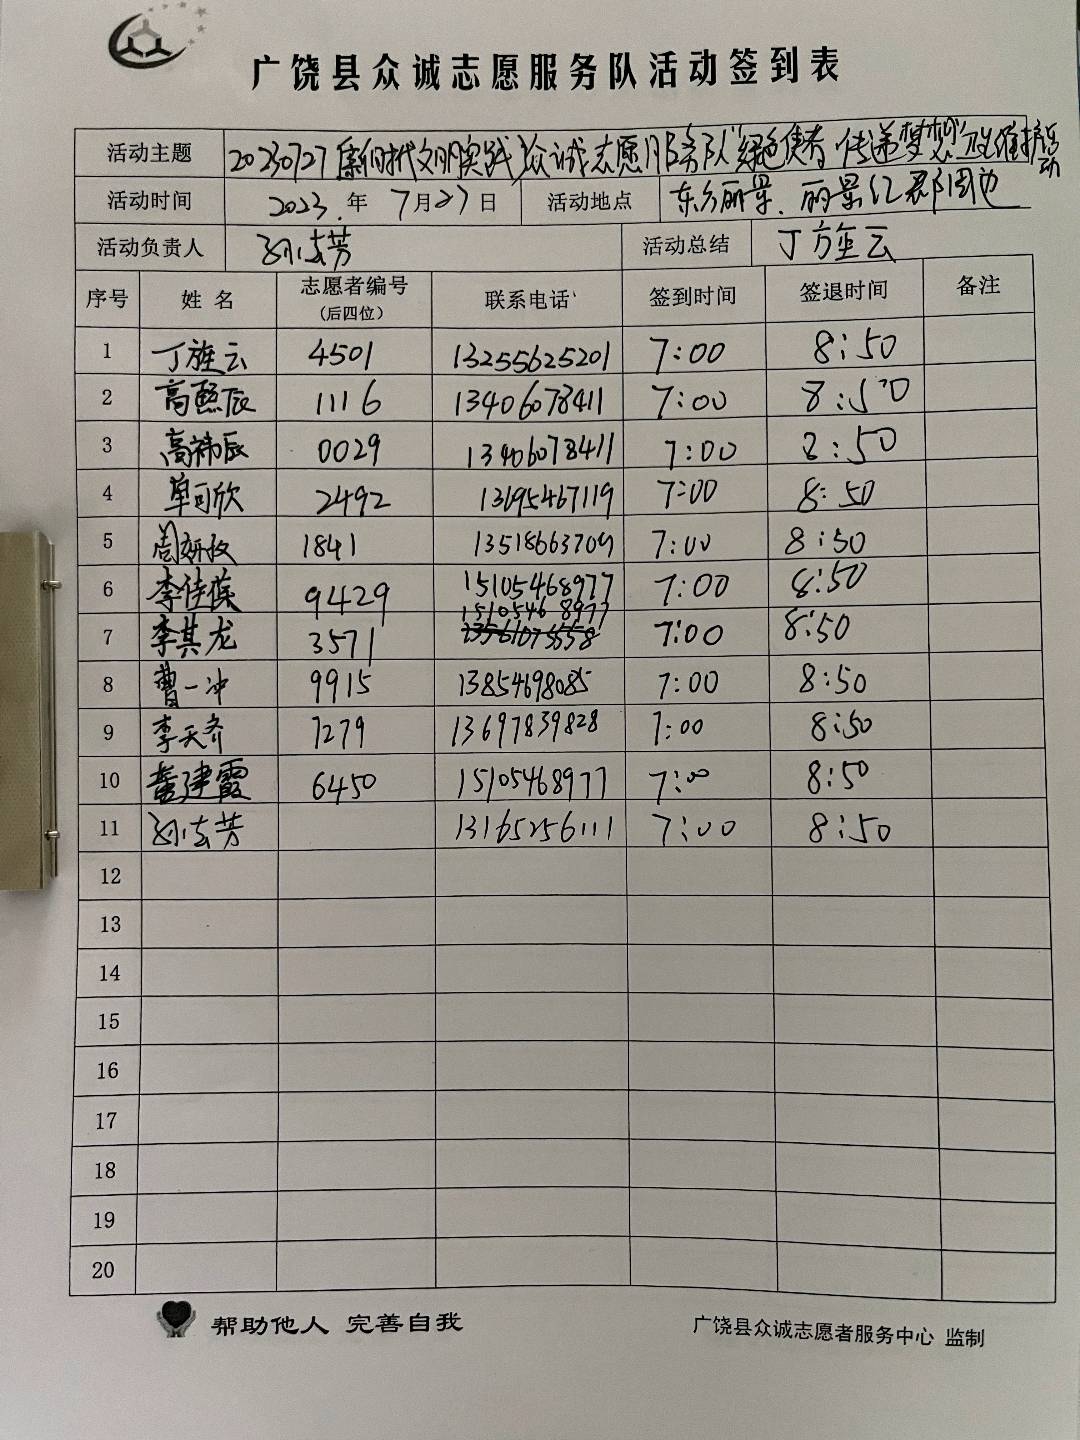 广饶县众诚志愿服务队活动签到表
活动主题 20230727新时代文明实践众诚志愿服务队"绿色使者 传递梦想"公益维护活动
活动时间 2023.年 7月27日 活动地点 东方丽景、丽景红郡周边
活动负责人 孙法芳 活动总结 丁旌云
序号 姓名 志愿者编号（后四位） 联系电话 签到时间 签退时间 备注
1 丁旌云 4501 13255625201 7:00 8:50
2 高熙辰 1116 13406078411 7:00 8:50
3 高祎辰 0029 13406078411 7:00 8:50
4 单可欣 2492 13695467119 7:00 8:50
5 周妍 1841 13518663709 7:00 8:50
6 李佳 9429 15105468977 7:00 8:50
7 李其龙 3571 15105468977 7:00 8:50
8 曹一冲 9915 13854698085 7:00 8:50
9 李天齐 7279 13697839828 7:00 8:50
10 董建霞 6450 15105468977 7:00 8:50
11 孙法芳 13165256111 7:00 8:50
12
13
14
15
16
17
18
19
20
帮助他人 完善自我
广饶县众诚志愿者服务中心 监制